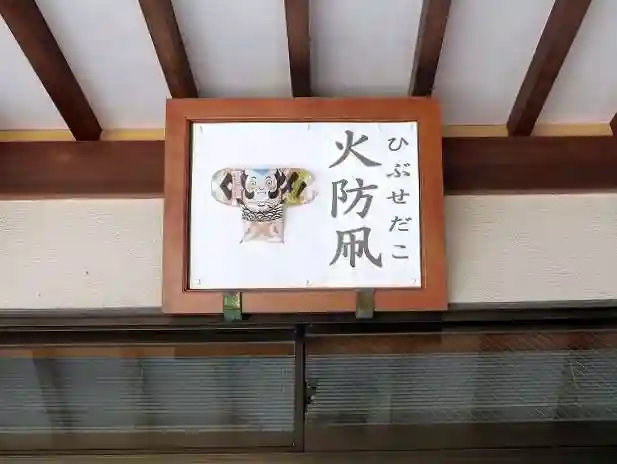 ひぶせだこ
火防凧